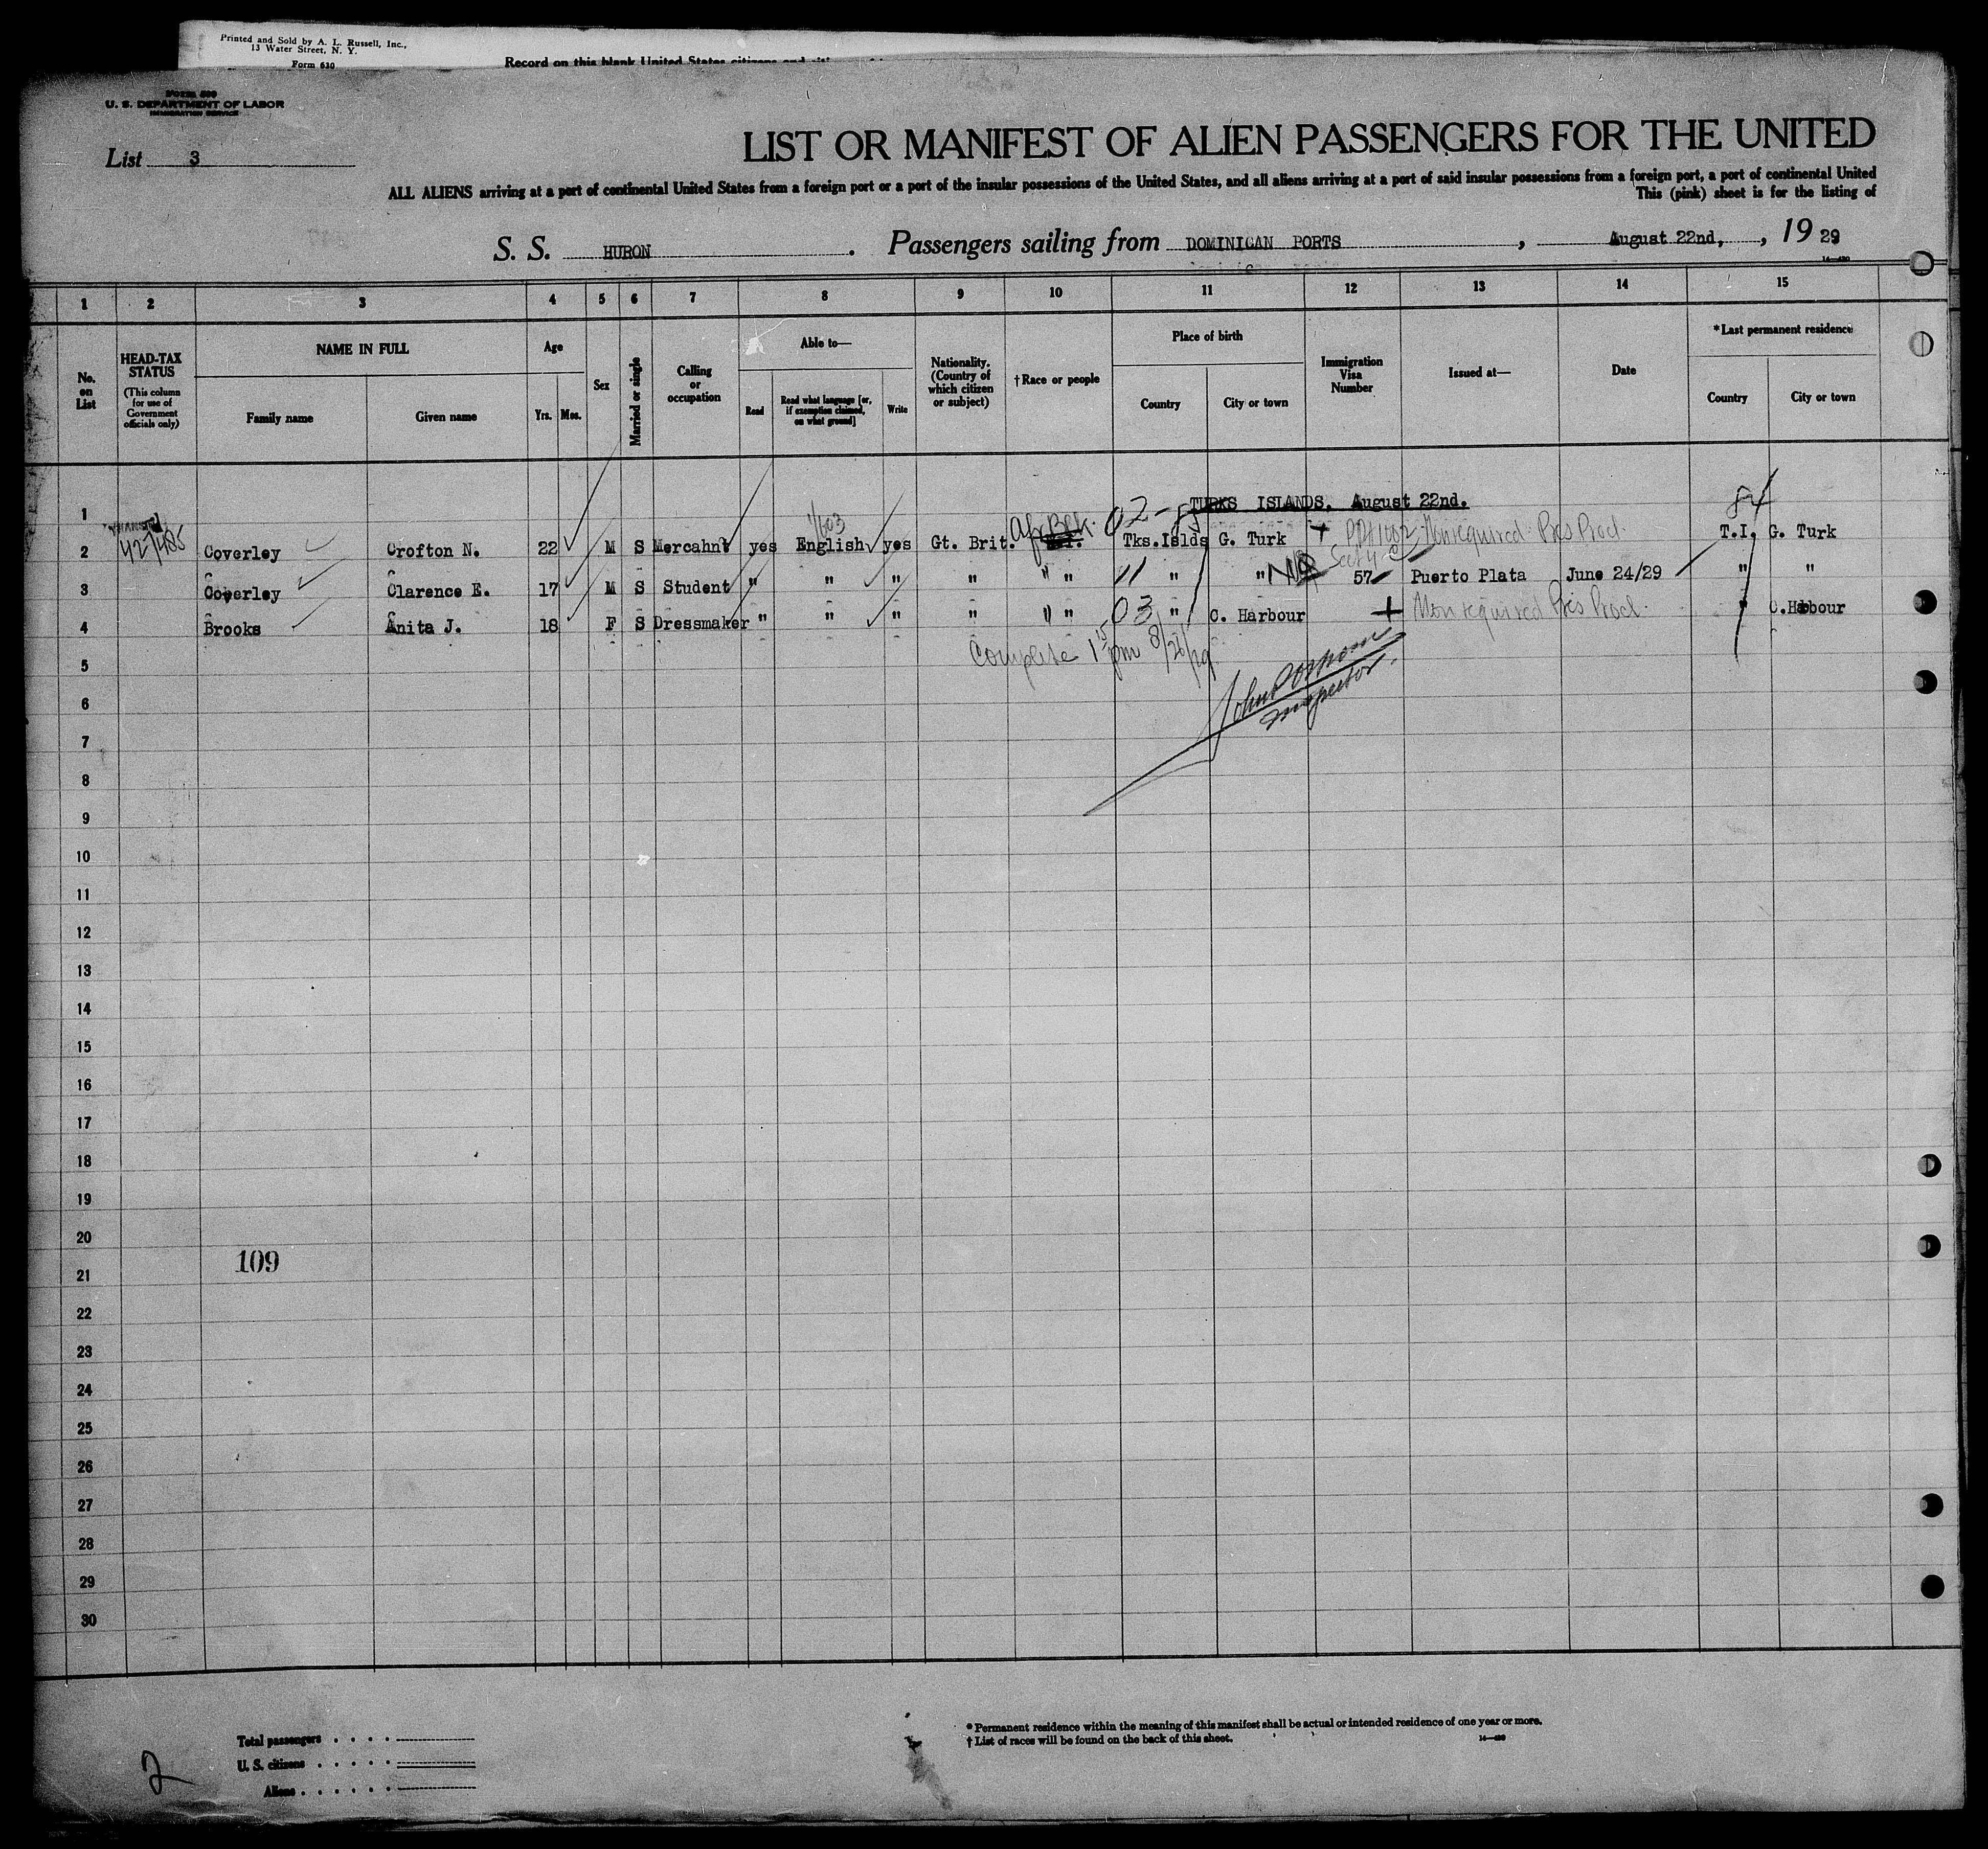 Printed and Sold by A. L. Russell, Inc.,
13 Water Street, N. Y.
Form 630
Record on this blank United States citizens and
Form 500
U. S. DEPARTMENT OF LABOR
IMMIGRATION SERVICE
List 3
LIST OR MANIFEST OF ALIEN PASSENGERS FOR THE UNITED
ALL ALIENS arriving at a port of continental United States from a foreign port or a port of the insular possessions of the United States, and all aliens arriving at a port of said insular possessions from a foreign port, a port of continental United
This (pink) sheet is for the listing of
S. S. HURON. Passengers sailing from DOMINICAN PORTS, August 22nd, , 19 29
1 2 3 4 5 6 7 8 9 10 11 12 13 14 15
No. on List
HEAD-TAX STATUS (This column for use of Government officials only)
NAME IN FULL
Family name Given name
Age
Yrs. Mos.
Sex
Married or single
Calling or occupation
Able to—
Read Read what language [or, if exemption claimed, on what ground] Write
Nationality. (Country of which citizen or subject)
†Race or people
Place of birth
Country City or town
Immigration Visa Number
Issued at—
Date
*Last permanent residence
Country City or town
1 TURKS ISLANDS, August 22nd. 84
2 Coverley Crofton N. 22 M S Mercahnt yes English yes Gt. Brit. Af Blk. Tks.Islds G. Turk + Non required Pres Procl T.I. G. Turk
3 Coverley Clarence E. 17 M S Student " " " " " " 11 " " 57 Puerto Plata June 24/29 " "
4 Brooks Anita J. 18 F S Dressmaker " " " " " " 03 " C. Harbour + Non required Pres Procl. " C.Habour
Complete 1 15 pm 8/26/29
5
6 Inspector.
7
8
9
10
11
12
13
14
15
16
17
18
19
20
109
21
22
23
24
25
26
27
28
29
30
Total passengers
U. S. citizens
Aliens
2
* Permanent residence within the meaning of this manifest shall be actual or intended residence of one year or more.
† List of races will be found on the back of this sheet.